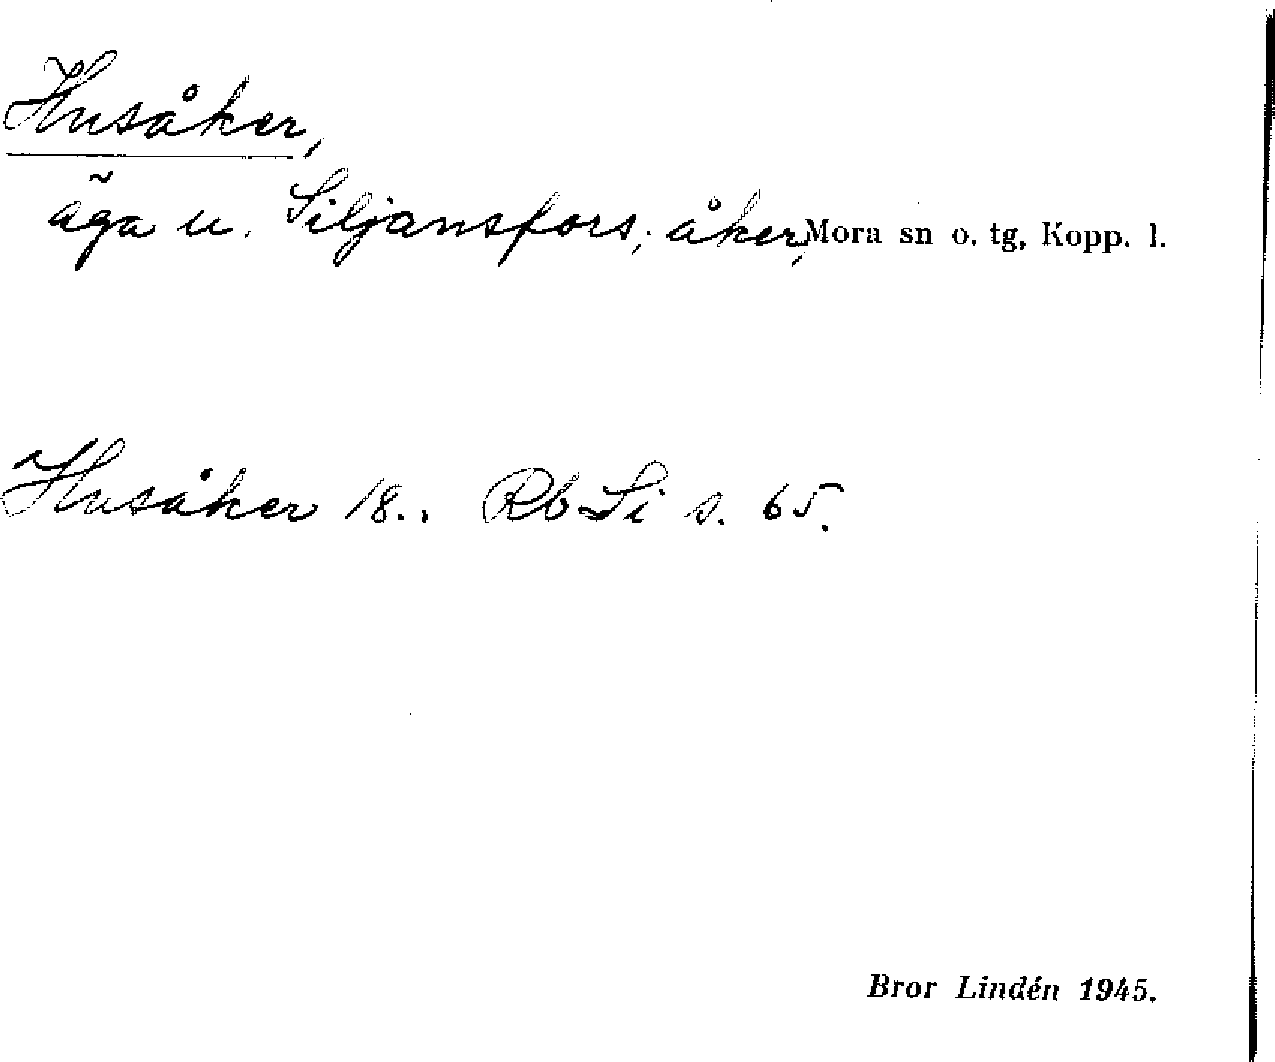 Husåker,
äga u. Siljansfors; åker, Mora sn o. tg, Kopp. l.
Husåker 18.. RbSi s. 65.
Bror Lindén 1945.